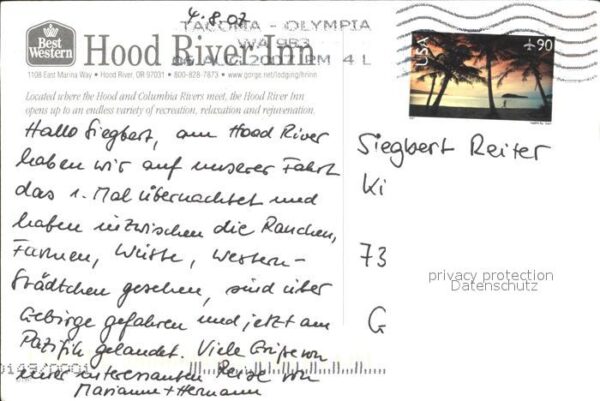 4.8.07
TACOMA - OLYMPIA
WA 983
06 AUG 2007 PM 4 L
Best Western
Hood River Inn
1108 East Marina Way • Hood River, OR 97031 • 800-828-7873 • www.gorge.net/lodging/hrinn
Located where the Hood and Columbia Rivers meet, the Hood River Inn
opens up to an endless variety of recreation, relaxation and rejuvenation.
USA
90
Hallo Siegbert, am Hood River
haben wir auf unserer Fahrt
das 1. Mal übernachtet und
haben inzwischen die Ranchen,
Farmen, Wüste, Western-
städtchen gesehen, sind über
Gebirge gefahren und jetzt am
Pazifik gelandet. Viele Grüße von
einer interessanten Reise von
Marianne + Hermann
Siegbert Reiter
Ki
73
G
privacy protection
Datenschutz